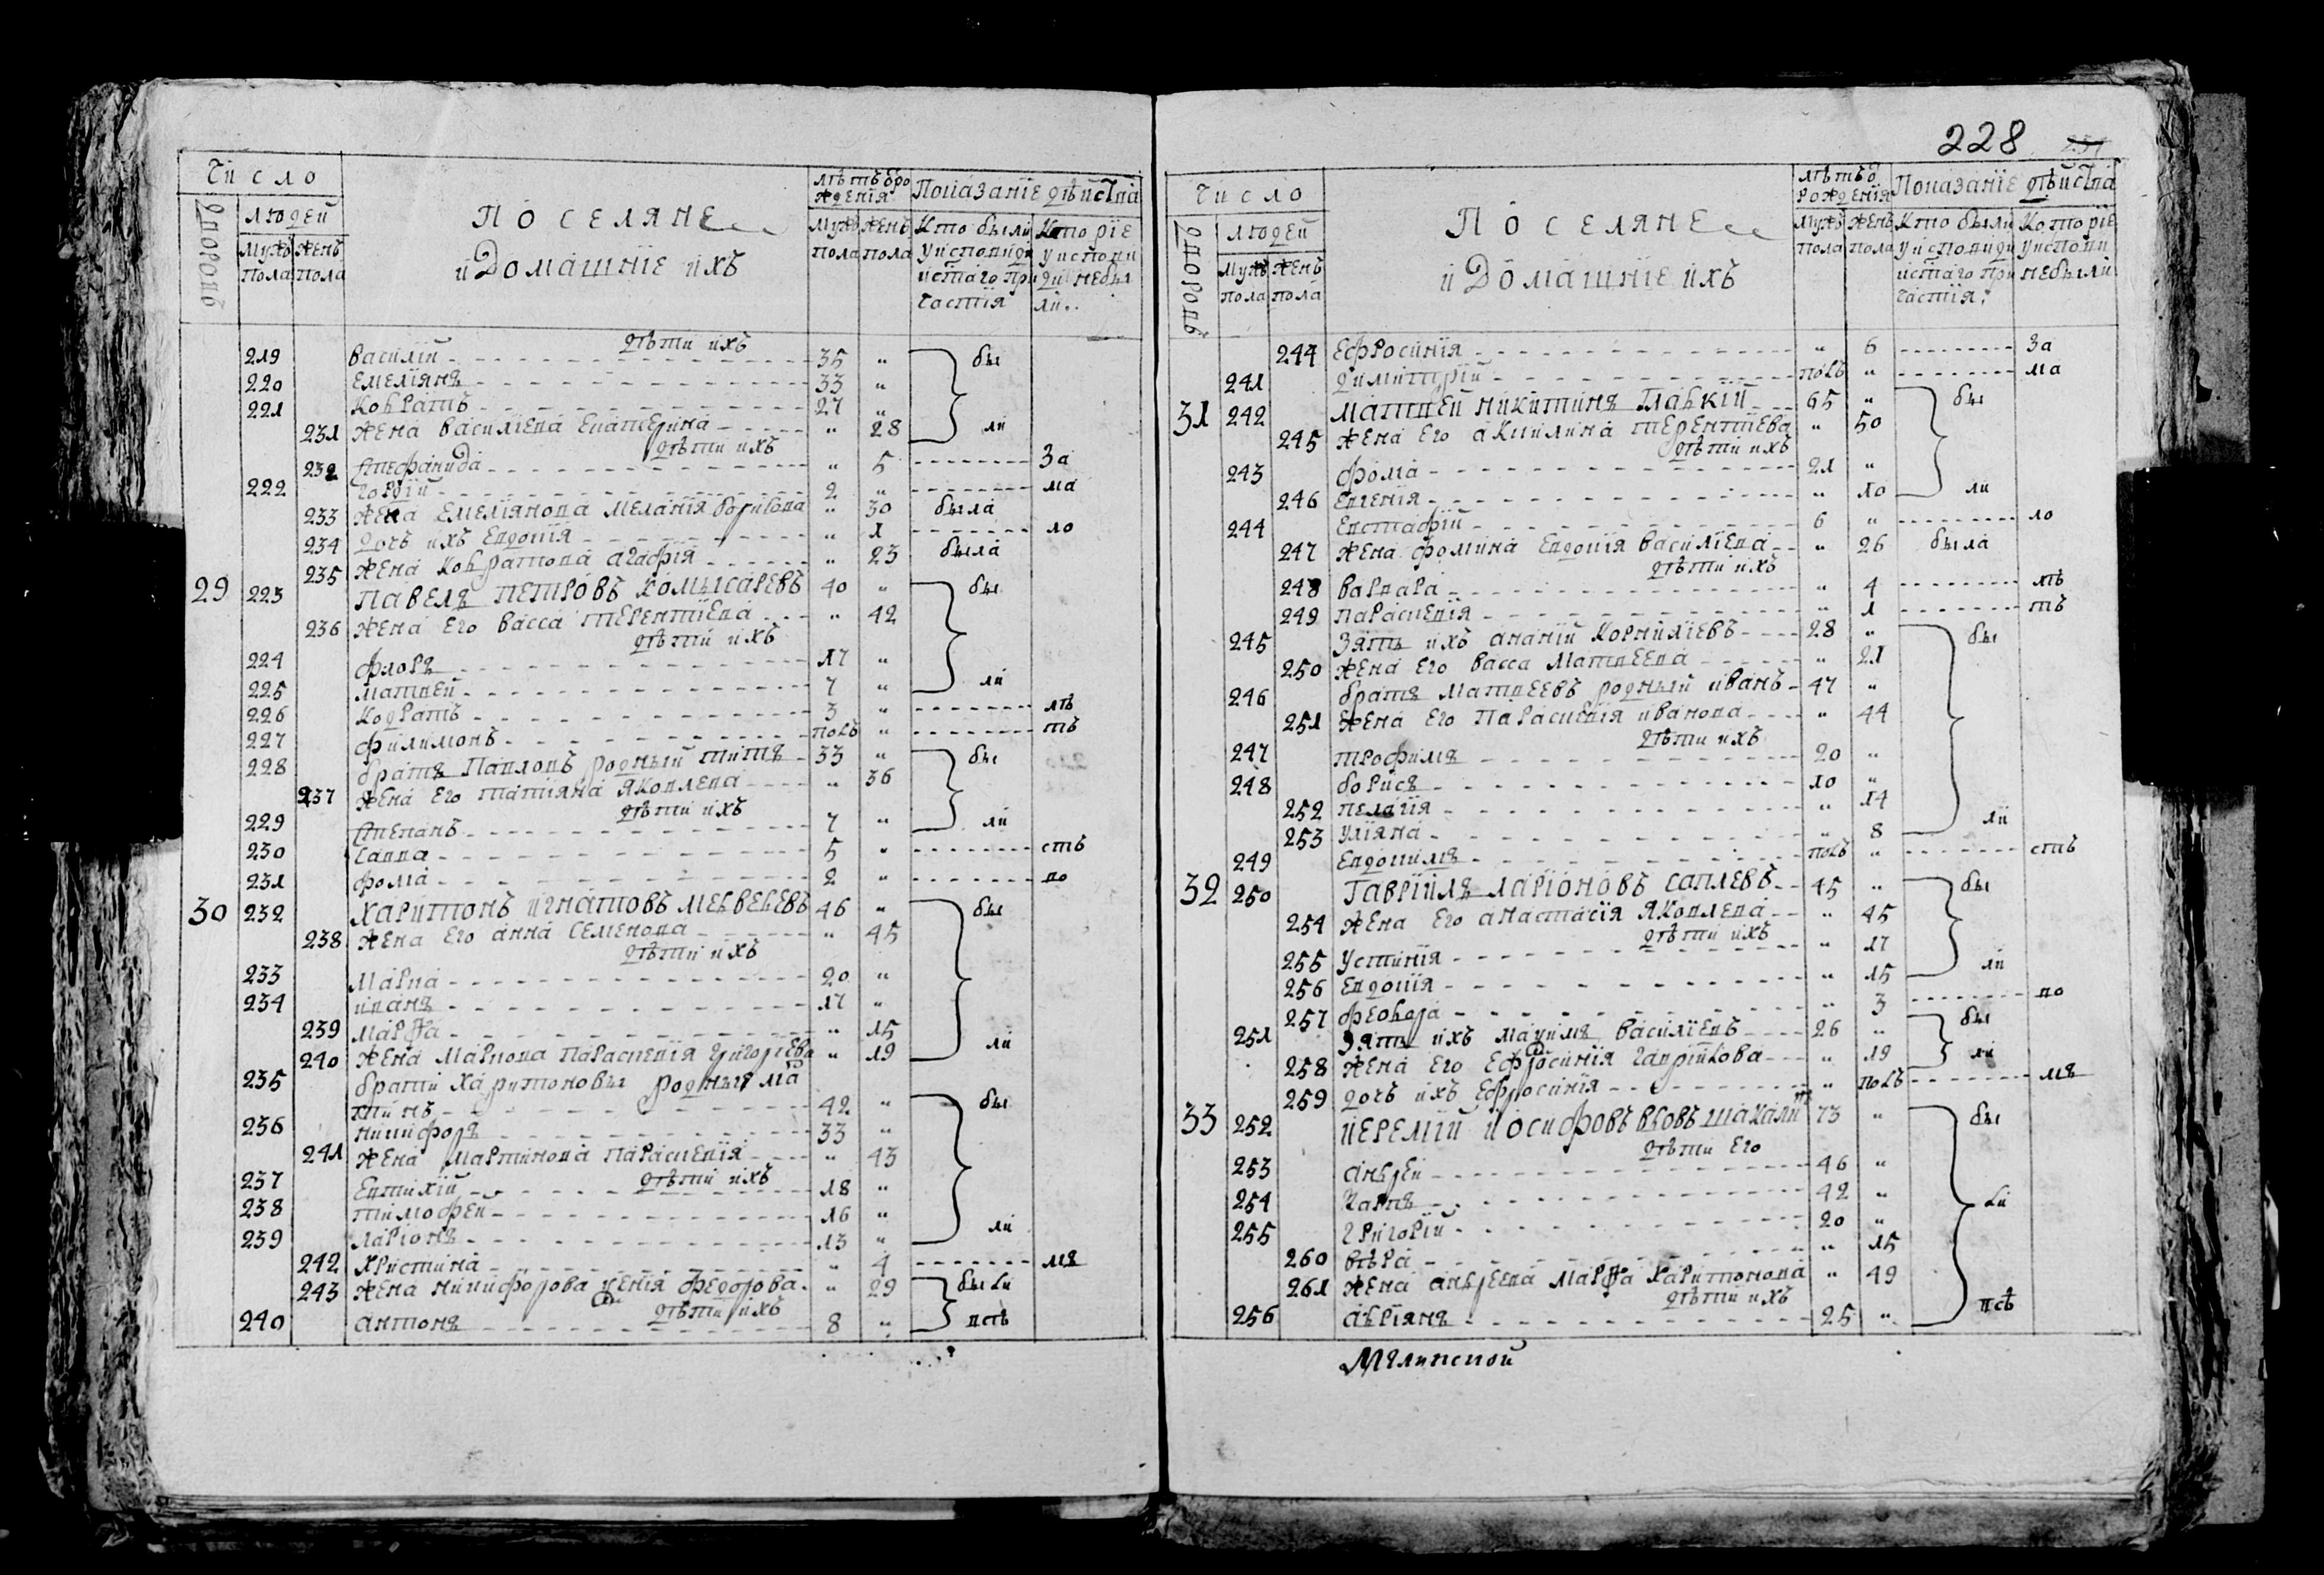 Число
дворовъ
людей
мужъ пола
женъ пола
ПОСЕЛЯНЕ
и Домашнїе ихъ
лѣтъ врождения
мужъ пола
женъ пола
Показанїе дѣйства
Кто были у исповѣди и стаго причастїя
Которїе у исповѣди небыли
дѣти ихъ
219 василїй 35 " бы
220 Емелїянъ 33 "
221 Кодратъ 27 "
231 жена василїева Екатерина " 28 ли
дѣти ихъ
232 Стефанида " 5 За
222 гордїй 2 " ма
233 жена Емелїянова меланїя борисова " 30 была
234 дочъ ихъ Евдокїя " 1 ло
235 жена Кодратова агафїя " 23 была
29 223 ПАВЕЛЪ ПЕТРОВЪ КОМЫСАРЕВЪ 40 " бы
236 жена Его васса терентїева " 42
дѣти ихъ
224 флоръ 17 "
225 матвей 7 " ли
226 Кодратъ 3 " лѣ
227 филимонъ полъ " тъ
228 братъ Павловъ родный титъ 33 " бы
237 жена Его татїяна Яковлева " 36
дѣти ихъ
229 Степанъ 7 " ли
230 Савва 5 " ств
231 фома 2 " во
30 232 ХАРИТОНЪ ИГНАТОВЪ МЕДВЕДЕВЪ 46 " бы
238 жена Его анна Семенова " 45
дѣти ихъ
233 марка 20 "
234 иванъ 17 "
239 марѳа " 15
240 жена маркова параскевїя григорїева " 19 ли
235 брати харитоновы родныя ма
тинъ 42 " бы
236 никифоръ 33 "
241 жена мартинова параскевїя " 43
дѣти ихъ
237 Евтихїй 18 "
238 тимофей 16 "
239 ларїонъ 13 " ли
242 христина " 4 мъ
243 жена никифорова ксенїя федорова " 29 были
дѣти ихъ
240 антонъ 8 " всѣ
228
Число
дворовъ
людей
мужъ пола
женъ пола
ПОСЕЛЯНЕ
и Домашнїе ихъ
лѣтъ рожденїя
мужъ пола
женъ пола
Показанїе дѣйства
Кто были у исповѣди и стаго причастїя
Которїе у исповѣди небыли
244 Ефросинїя " 6 За
241 димитрїй полъ " ма
31 242 МАТВЕЙ НИКИТИНЪ ГЛАДКЇЙ 65 " бы
245 жена Его акилина терентїева " 50
дѣти ихъ
243 фома 21 "
246 Евгенїя " 10 ли
244 Евстафїй 6 " ло
247 жена фомина Евдокїя василїева " 26 была
дѣти ихъ
248 варвара " 4 лѣ
249 параскевїя " 1 тъ
245 Зять ихъ ананїй Корнилїевъ 28 " бы
250 жена Его васса матвеева " 21
246 братъ матвеевъ родный иванъ 47 "
251 жена Его параскевїя иванова " 44
дѣти ихъ
247 трофимъ 20 "
248 борисъ 10 "
252 пелагїя " 14
253 улїяна " 8 ли
249 Евдокимъ полъ " ств
32 250 ГАВРЇИЛЪ ЛАРЇОНОВЪ САВЛЕВЪ 45 " бы
254 жена Его анастасїя Яковлева " 45
дѣти ихъ
255 устинїя " 17
256 Евдокїя " 15 ли
257 феодора " 3 во
251 Зять ихъ максимъ василїевъ 26 " бы
258 жена Его Ефросинїя гавриїлова " 19 ли
259 дочъ ихъ Ефросинїя " полъ мъ
33 252 ИЕРЕМЇЙ ИОСИФОВЪ ВДОВЪ ШАКАЛИ 73 " бы
дѣти Его
253 андрей 46 "
254 Карпъ 42 " ли
255 григорїй 20 "
260 вѣра " 15
261 жена андреева марѳа харитонова " 49
дѣти ихъ
256 адрїянъ 25 " всѣ